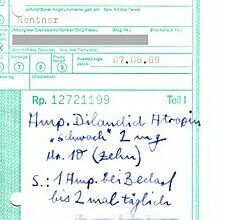 Rentner
07.08.89
Rp. 12721199 Teil I
Amp. Dilaudid Atropin
„schwach" 2 mg
No. 10 (zehn)
S.: 1 Amp. bei Bedarf
bis 2 mal täglich